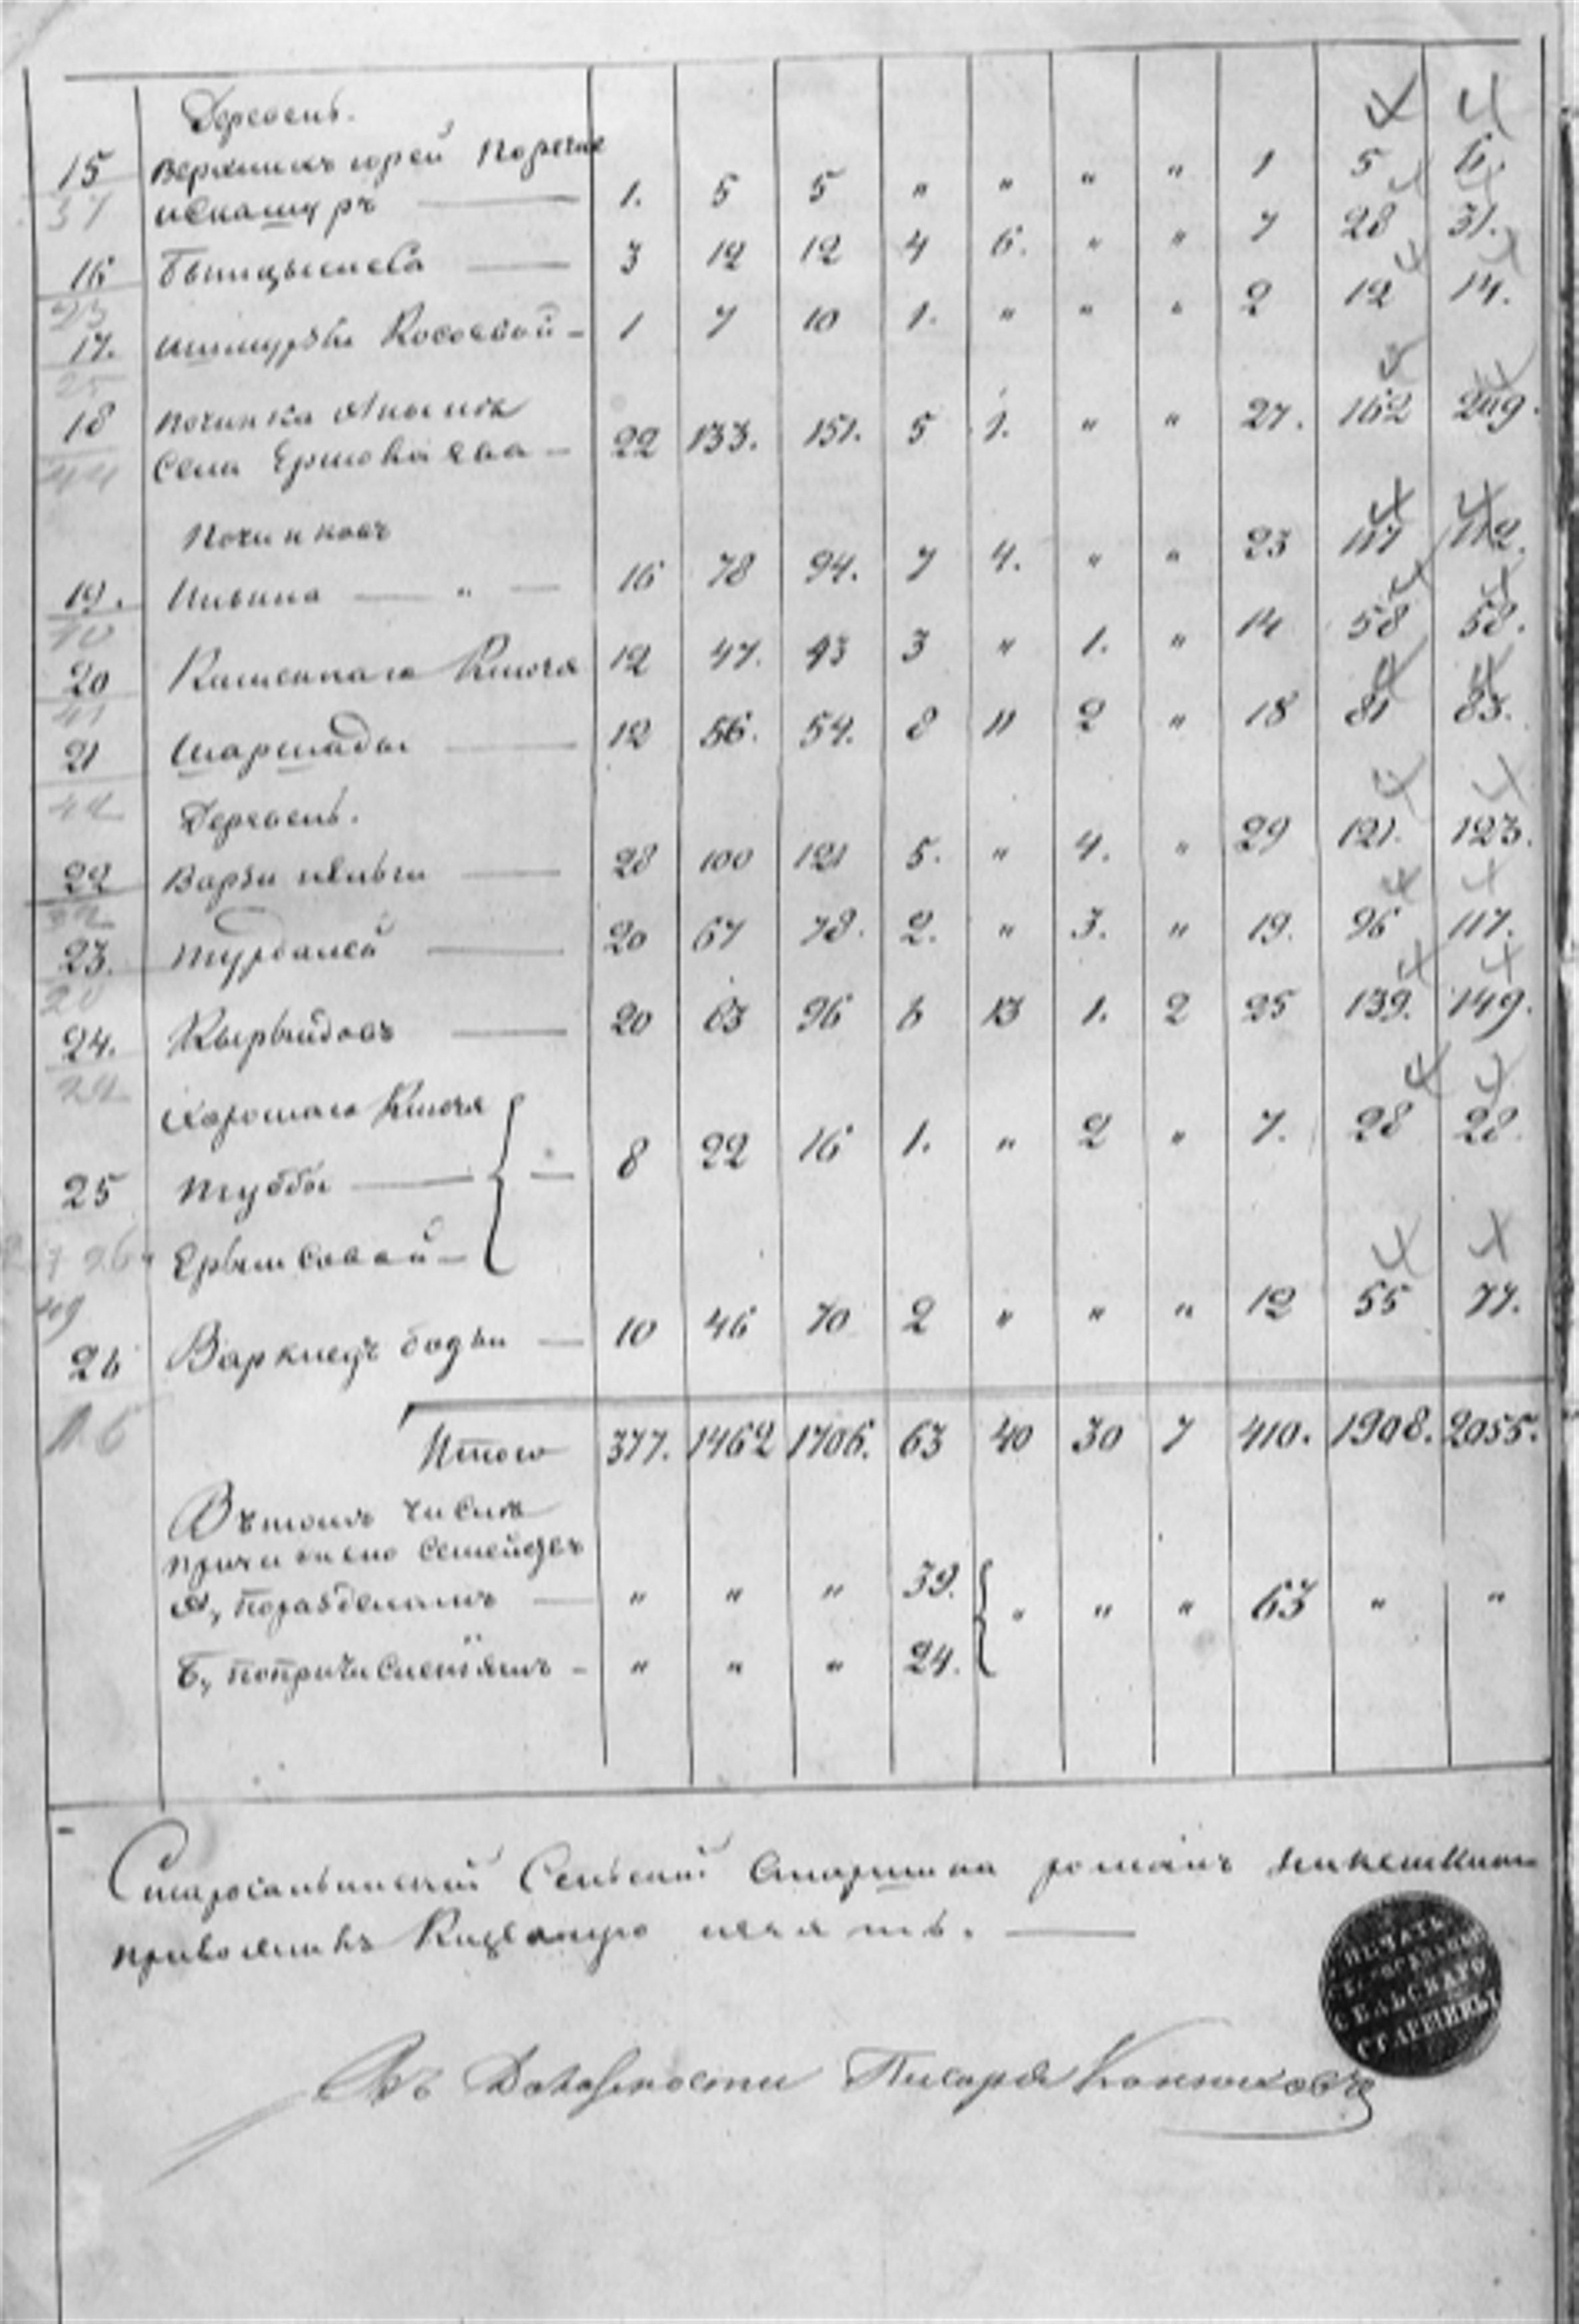 Деревень.
15 Верхнихъ юрей Поречне
37 искашуръ — 1. 5 5 „ „ „ „ 1 5 6.
16 — 3 12 12 4 6. „ „ 7 28 31.
23
17. Косоевой – 1 7 10 1. „ „ „ 2 12 14.
25
18 Починка
44 Села Ермолаева – 22 133. 151. 5 1. „ „ 27. 162 209.
Починковъ
19. Ильина — „ — 16 78 94. 7 4. „ „ 23 117 112.
10
20 Каменнаго Ключа 12 47. 43 3 „ 1. „ 14 58 58.
41
21 Шаршады — 12 56. 54. 8 11 2 „ 18 81 83.
42
Деревень.
22 Варзи — 28 100 121 5. „ 4. „ 29 121. 123.
32
23. Турдалей — 20 67 78. 2. „ 3. „ 19. 96 117.
20
24. Кырвыйдовъ — 20 63 96 6 13 1. 2 25 139. 149.
22
Хорошаго Ключа
25 Туббы — 8 22 16 1. „ 2 „ 7. 28 28.
26
49
26 Варкледъ бодьи — 10 46 70 2 „ „ „ 12 55 77.
Итого 377. 1462 1706. 63 40 30 7 410. 1908. 2055.
Въ томъ числѣ
причислено семействъ
А, по разделамъ — „ „ „ 39. „ „ „ 63 „ „
Б, по причисленіямъ – „ „ „ 24.
Старосальинский Сельский Старшина романъ
приложилъ Казенную печать. —
ПЕЧАТЬ
СЕЛЬСКАГО
СТАРШИНЫ
Въ Должности Писаря Конюховъ